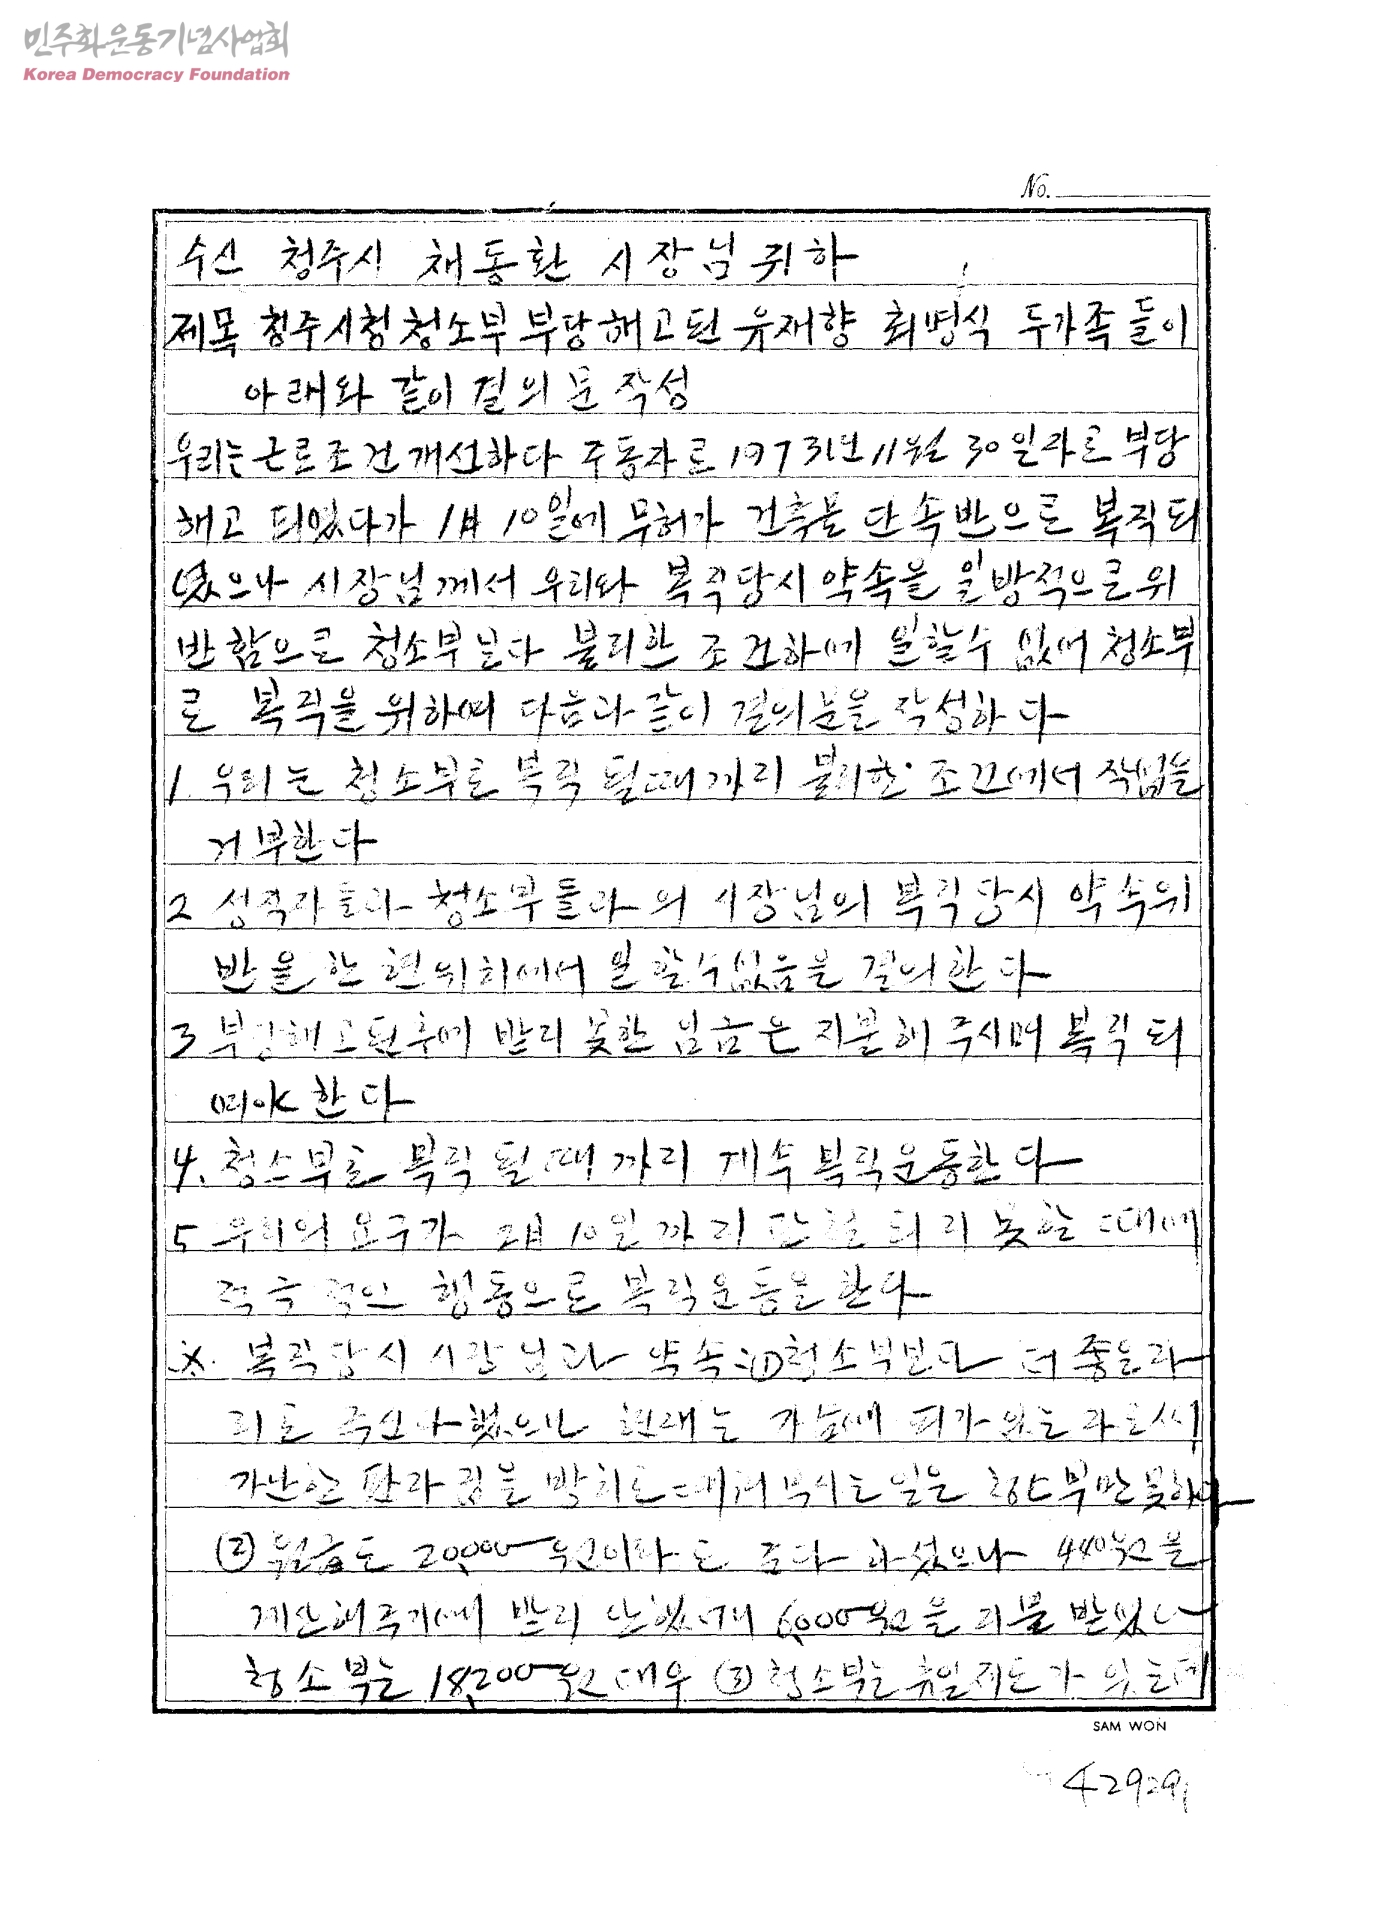 민주화운동기념사업회
Korea Democracy Foundation
No.
수신 청주시 채동환 시장님 귀하
제목 청주시청 청소부 부당해고된 유재향 최명식 두가족들이
아래와 같이 결의문 작성
우리는 근로조건개선하다 주동자로 1973년 11월 30일자로 부당
해고 되였다가 1月 10일에 무허가 건축물 단속반으로 복직되
였으나 시장님께서 우리와 복직당시 약속을 일방적으로 위
반함으로 청소부보다 불리한 조건하에 일할수 없어 청소부
로 복직을 위하여 다음과 같이 결의문을 작성하다
1. 우리는 청소부로 복직 될때까지 불리한 조건에서 작업을
거부한다
2 성직자들과 청소부들과의 시장님의 복직당시 약속위
반을 한 현위치에서 일할수없음을 결의한다
3 부당해고된후에 받지 못한 임금은 지불해 주시며 복직되
여야 한다
4. 청소부로 복직 될때까지 계속 복직운동한다
5 우리의 요구가 2月 10일까지 관철되지 못할 때에
적극적인 행동으로 복직운동을 한다
※. 복직당시 시장님과 약속:① 청소부보다 더 좋은자
리로 주신다했으나 현재는 가슴에 피가 있는자로써
가난한 판자집을 부시는 일은 청소부만 못하다
② 월급도 20,000원이라도 준다 하셨으나 440원을
계산해주기에 받지 안했더니 6,000원을 지불 받았으나
청소부는 18,200원 대우 ③ 청소부는 휴일제도가 있는데
SAM WON
429291